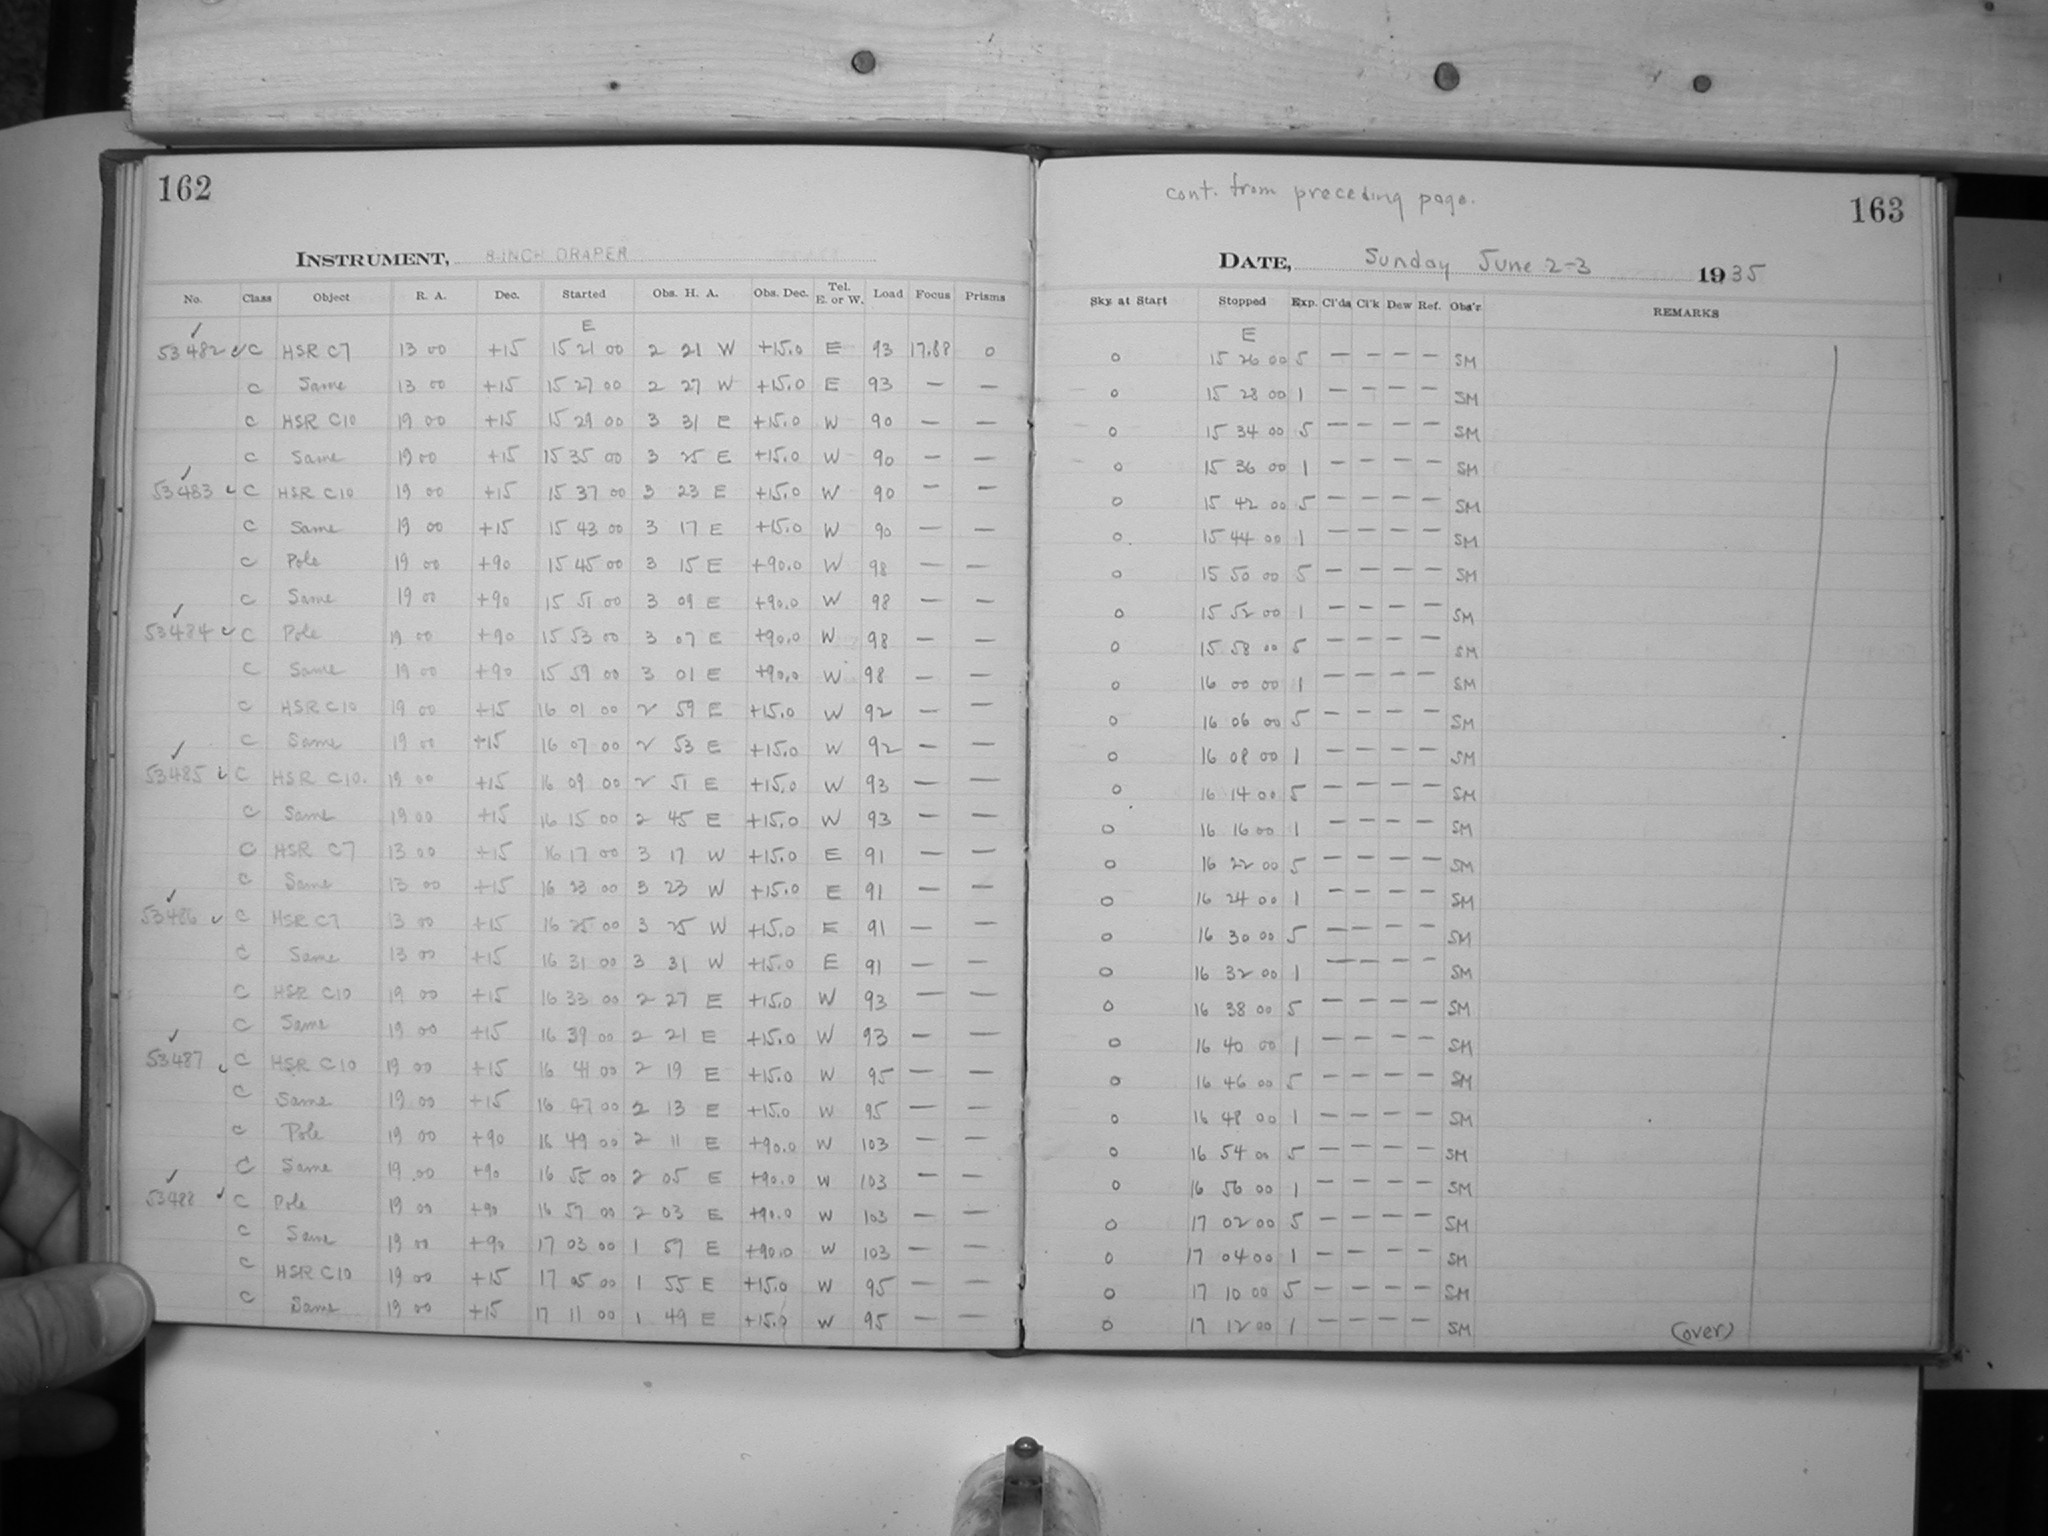 162
INSTRUMENT, 8-INCH DRAPER
No. Class Object R. A. Dec. Started Obs. H. A. Obs. Dec. Tel. E. or W. Load Focus Prisms
E
53482 C HSR C7 13 00 +15 15 21 00 2 21 W +15.0 E 93 17.88 0
C Same 13 00 +15 15 27 00 2 27 W +15.0 E 93 — —
C HSR C10 19 00 +15 15 29 00 3 31 E +15.0 W 90 — —
C Same 19 00 +15 15 35 00 3 25 E +15.0 W 90 — —
53483 C HSR C10 19 00 +15 15 37 00 3 23 E +15.0 W 90 — —
C Same 19 00 +15 15 43 00 3 17 E +15.0 W 90 — —
C Pole 19 00 +90 15 45 00 3 15 E +90.0 W 98 — —
C Same 19 00 +90 15 51 00 3 09 E +90.0 W 98 — —
53484 C Pole 19 00 +90 15 53 00 3 07 E +90.0 W 98 — —
C Same 19 00 +90 15 59 00 3 01 E +90.0 W 98 — —
C HSR C10 19 00 +15 16 01 00 2 59 E +15.0 W 92 — —
C Same 19 00 +15 16 07 00 2 53 E +15.0 W 92 — —
53485 C HSR C10. 19 00 +15 16 09 00 2 51 E +15.0 W 93 — —
C Same 19 00 +15 16 15 00 2 45 E +15.0 W 93 — —
C HSR C7 13 00 +15 16 17 00 3 17 W +15.0 E 91 — —
C Same 13 00 +15 16 23 00 3 23 W +15.0 E 91 — —
53486 C HSR C7 13 00 +15 16 25 00 3 25 W +15.0 E 91 — —
C Same 13 00 +15 16 31 00 3 31 W +15.0 E 91 — —
C HSR C10 19 00 +15 16 33 00 2 27 E +15.0 W 93 — —
C Same 19 00 +15 16 39 00 2 21 E +15.0 W 93 — —
53487 C HSR C10 19 00 +15 16 41 00 2 19 E +15.0 W 95 — —
C Same 19 00 +15 16 47 00 2 13 E +15.0 W 95 — —
C Pole 19 00 +90 16 49 00 2 11 E +90.0 W 103 — —
C Same 19 00 +90 16 55 00 2 05 E +90.0 W 103 — —
53488 C Pole 19 00 +90 16 57 00 2 03 E +90.0 W 103 — —
C Same 19 00 +90 17 03 00 1 57 E +90.0 W 103 — —
C HSR C10 19 00 +15 17 05 00 1 55 E +15.0 W 95 — —
C Same 19 00 +15 17 11 00 1 49 E +15.0 W 95 — —
cont. from preceding page.
163
DATE, Sunday June 2-3 1935
Sky at Start Stopped Exp. Cl'ds Cl'k Dew Ref. Obs'r REMARKS
E
0 15 26 00 5 — — — — SM
0 15 28 00 1 — — — — SM
0 15 34 00 5 — — — — SM
0 15 36 00 1 — — — — SM
0 15 42 00 5 — — — — SM
0 15 44 00 1 — — — — SM
0 15 50 00 5 — — — — SM
0 15 52 00 1 — — — — SM
0 15 58 00 5 — — — — SM
0 16 00 00 1 — — — — SM
0 16 06 00 5 — — — — SM
0 16 08 00 1 — — — — SM
0 16 14 00 5 — — — — SM
0 16 16 00 1 — — — — SM
0 16 22 00 5 — — — — SM
0 16 24 00 1 — — — — SM
0 16 30 00 5 — — — — SM
0 16 32 00 1 — — — — SM
0 16 38 00 5 — — — — SM
0 16 40 00 1 — — — — SM
0 16 46 00 5 — — — — SM
0 16 48 00 1 — — — — SM
0 16 54 00 5 — — — — SM
0 16 56 00 1 — — — — SM
0 17 02 00 5 — — — — SM
0 17 04 00 1 — — — — SM
0 17 10 00 5 — — — — SM
0 17 12 00 1 — — — — SM
(over)